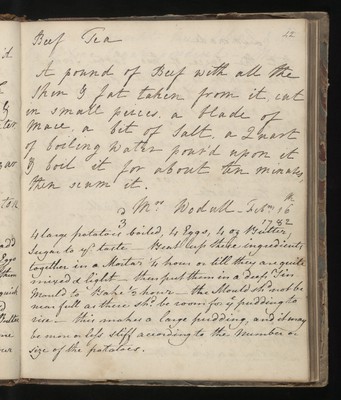 22
Beef Tea
A pound of Beef with all the
Skin & fat taken from it, cut
in small pieces. a blade of
Mace, a bit of Salt, a Quart
of boiling Water pour'd upon it
& boil it for about ten minutes,
then scum it.
Mrs Wodull Febry 16th
1782
4 large potatoes boiled, 4 Eggs, 4 oz Butter,
Sugar to yr taste - Beat up these ingredients
together in a Mortar ¼ hour or till they are quite
mixed & light - then put them in a deep Tin
Mould to Bake ½ hour - the Mould shd not be
near full as there shd be room for ye pudding to
rise - this makes a large pudding, and it may
be more or less stiff according to the Number or
size of the potatoes.